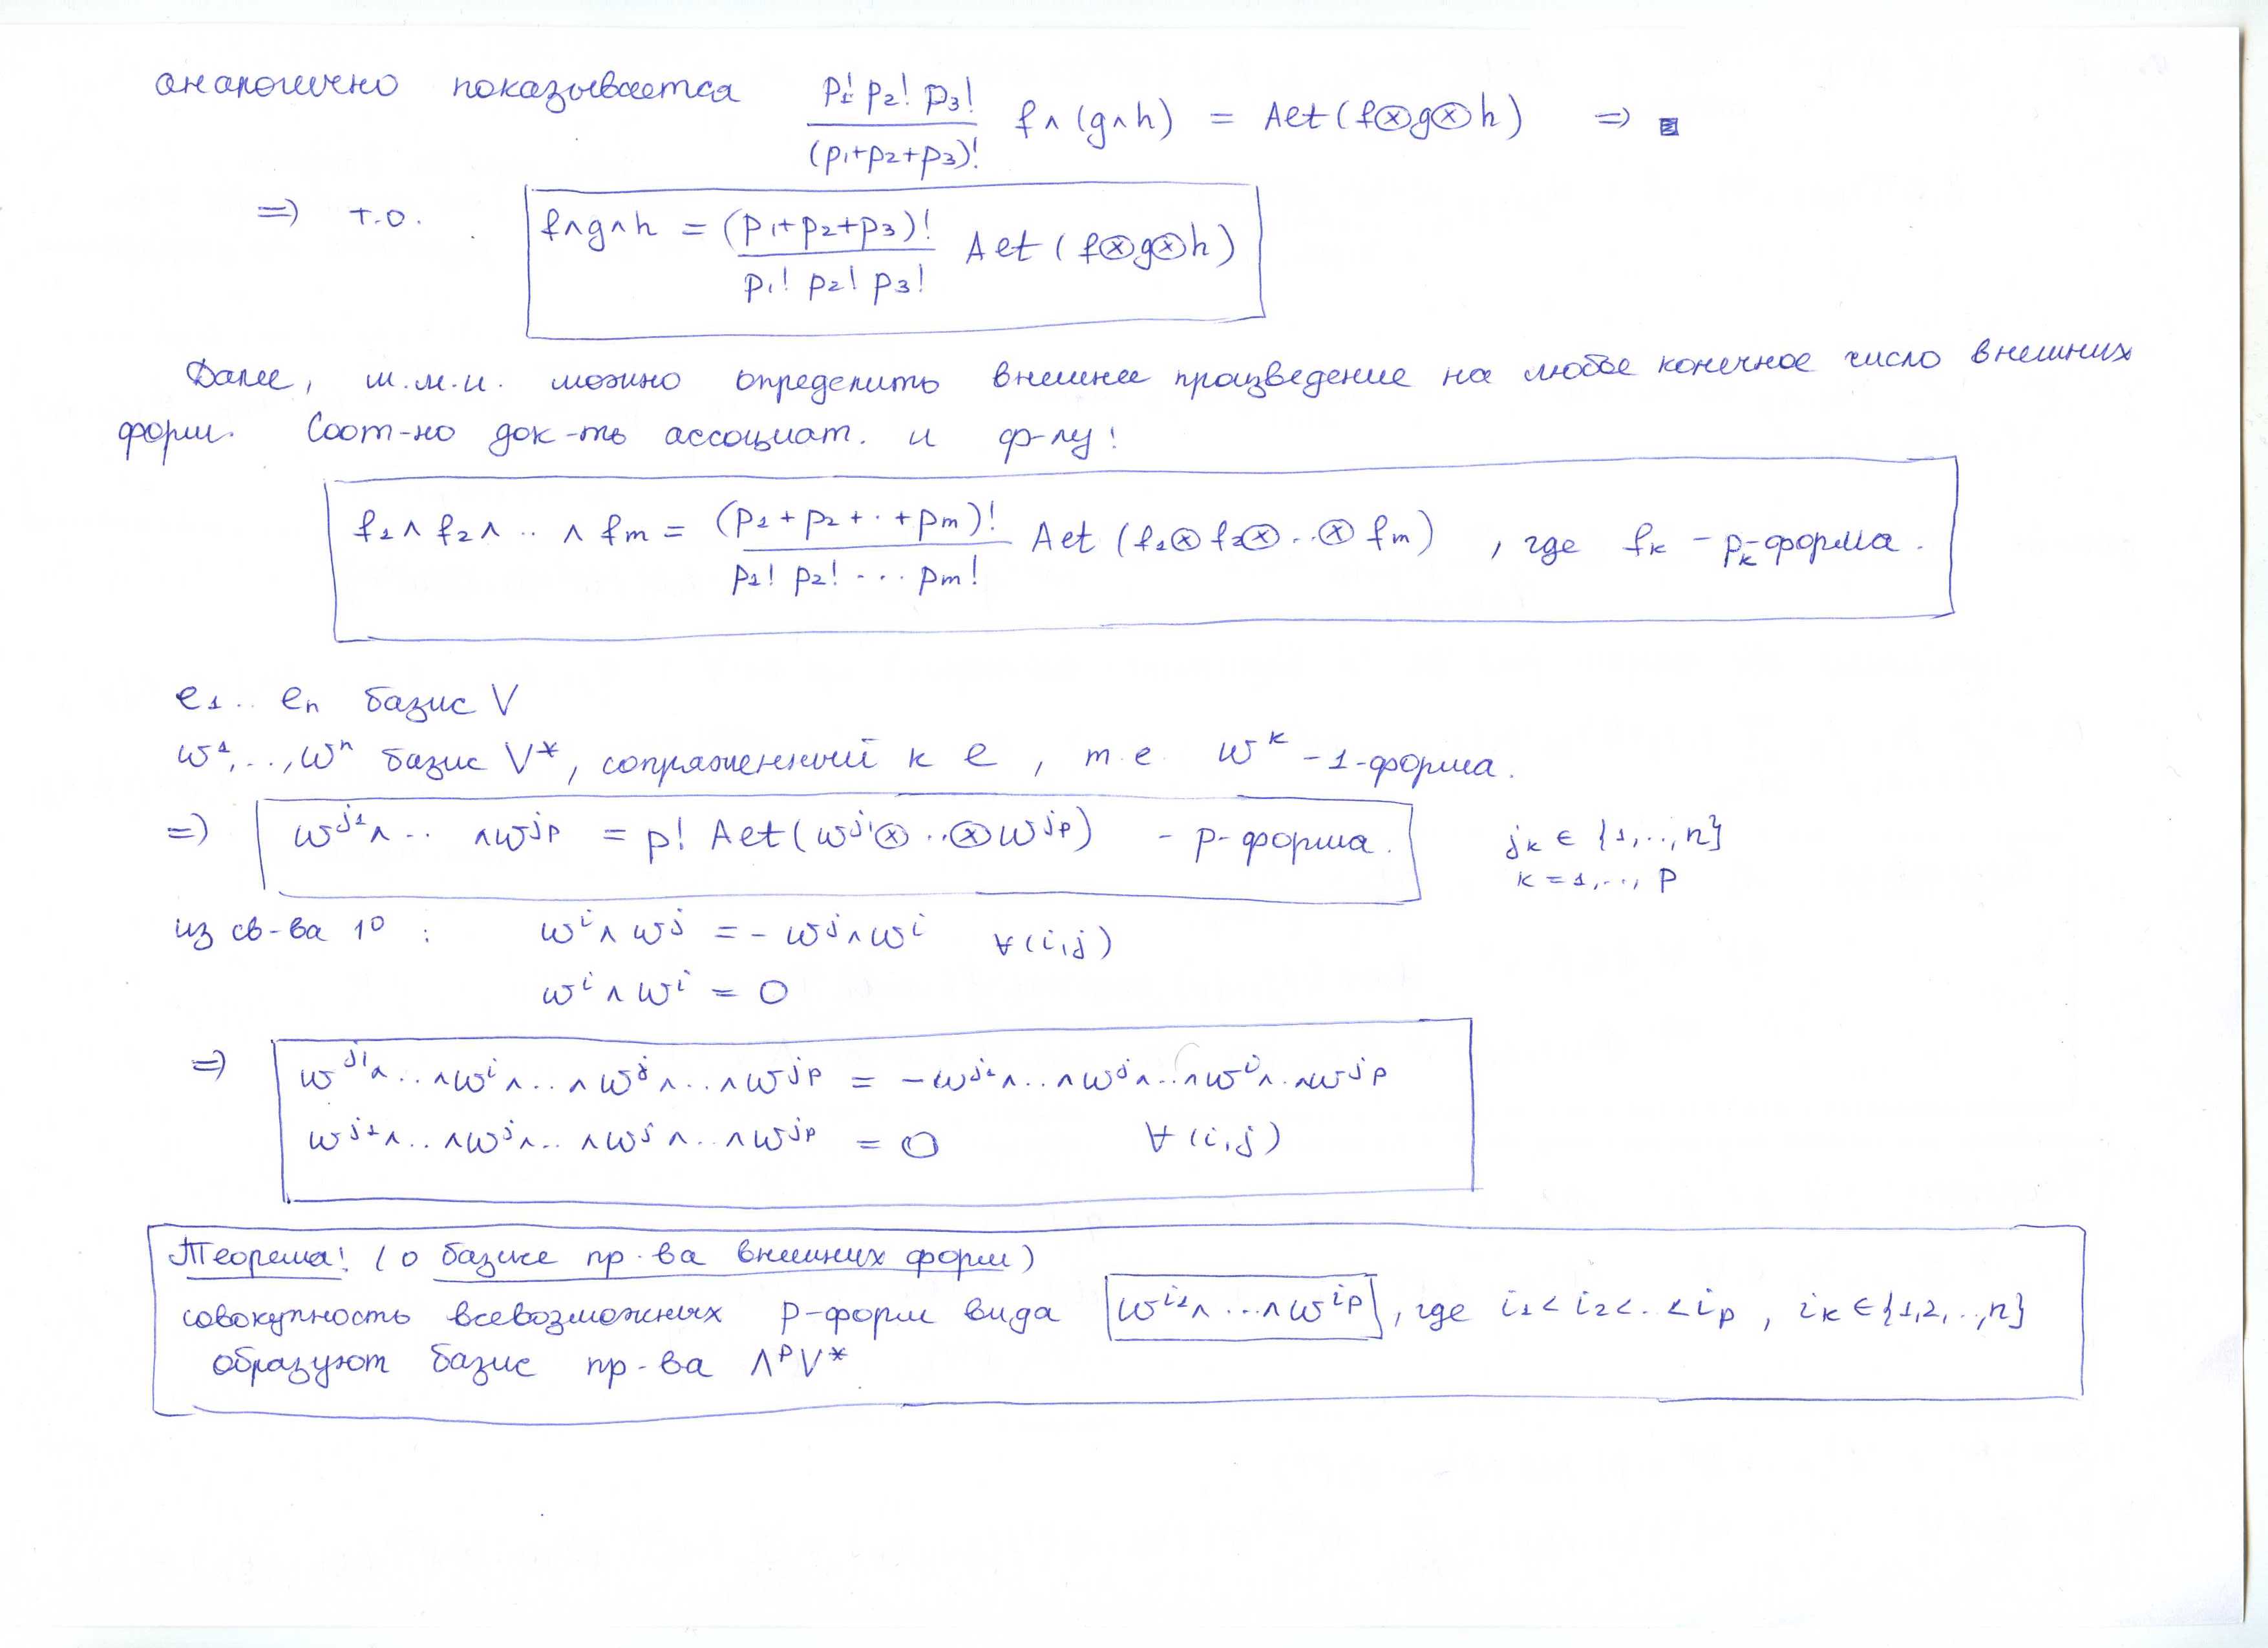 аналогично показывается p₁! p₂! p₃! / (p₁+p₂+p₃)! f∧(g∧h) = Alt(f⊗g⊗h) ⇒
⇒ т.о. f∧g∧h = (p₁+p₂+p₃)! / p₁! p₂! p₃! Alt(f⊗g⊗h)
Далее, м.м.и. можно определить внешнее произведение на любое конечное число внешних
форм. Соот-но док-ть ассоциат. и ф-лу:
f₁∧f₂∧..∧fₘ = (p₁+p₂+..+pₘ)! / p₁! p₂! ... pₘ! Alt(f₁⊗f₂⊗..⊗fₘ), где fₖ - pₖ-форма.
e₁.. eₙ базис V
w¹,..,wⁿ базис V*, сопряженный к e, т.е. wᵏ - 1-форма.
⇒ w^{j₁}∧.. ∧w^{jₚ} = p! Alt(w^{j₁}⊗..⊗w^{jₚ}) - p-форма. jₖ ∈ {1,..,n}
k=1,..,p
из св-ва 10: wⁱ∧wʲ = -wʲ∧wⁱ ∀(i,j)
wⁱ∧wⁱ = 0
⇒ w^{j₁}∧..∧wⁱ∧...∧wʲ∧...∧w^{jₚ} = -w^{j₁}∧...∧wʲ∧...∧wⁱ∧..∧w^{jₚ}
w^{j₁}∧..∧wʲ∧..∧wʲ∧..∧w^{jₚ} = 0 ∀(i,j)
Теорема: (о базисе пр-ва внешних форм)
совокупность всевозможных p-форм вида w^{i₁}∧...∧w^{iₚ}, где i₁<i₂<..<iₚ, iₖ∈{1,2,..,n}
образуют базис пр-ва ΛᵖV*